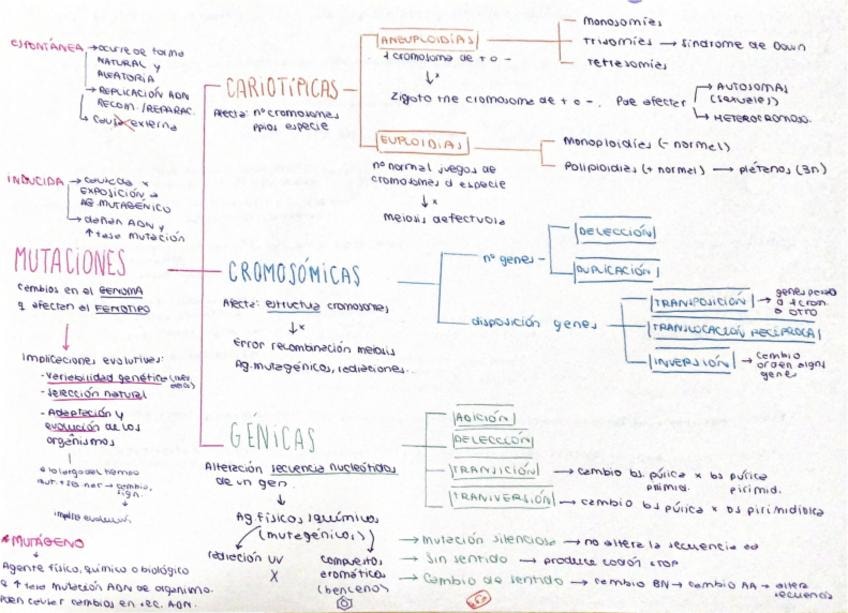 ESPONTÁNEA → ocurre de forma
NATURAL y
ALEATORIA
→ REPLICACIÓN ADN
RECOM./REPARAC.
↳ Causa externa
INDUCIDA → causada x
EXPOSICIÓN a
AG. MUTAGÉNICO
→ dañan ADN y
↑ tasa mutación
MUTACIONES
Cambios en el GENOMA
q afectan al FENOTIPO
Implicaciones evolutivas:
- Variabilidad genética
- Selección natural
- Adaptación y
evolución de los
organismos
a lo largo del tiempo
→ cambio
sign.
implica evolución
*MUTÁGENO
Agente físico, químico o biológico
q ↑ tasa mutación ADN de organismo.
Pueden causar cambios en sec. ADN.
CARIOTÍPICAS
Afecta: nº cromosomas
ppios especie
ANEUPLOIDÍAS
1 cromosoma de + o -
↓x
Zigoto tne cromosoma de + o -. Pue afectar
→ AUTOSOMAS
(sexuales)
↳ HETEROCROMOSO.
Monosomías
Trisomías → Síndrome de Down
Tetrasomías
EUPLOIDÍAS
nº normal juegos de
cromosomas d especie
↓x
meiosis defectuosa
Monoploidías (- normal)
Poliploidías (+ normal) → plátanos (3n)
CROMOSÓMICAS
Afecta: estructura cromosomas
↓x
Error recombinación meiosis
Ag. mutagénicos, radiaciones...
nº genes
DELECCIÓN
DUPLICACIÓN
disposición genes
TRANSPOSICIÓN →
a 1 crom
a otro
TRANSLOCACIÓN RECÍPROCA
INVERSIÓN → cambio
orden
gene
GÉNICAS
Alteración secuencia nucleótidos
de un gen.
Ag. físicos y químicos
(mutagénicos)
radiación UV
X
compuestos
aromáticos
(benceno)
ADICIÓN
DELECCIÓN
TRANSICIÓN → cambio bs púrica x bs púrica
pirimid. pirimid.
TRANVERSIÓN → cambio bs púrica x bs pirimidínica
→ Mutación silenciosa → no altera la secuencia aa
→ Sin sentido → produce codón STOP
→ Cambio de sentido → cambio BN → cambio AA → altera
secuencia